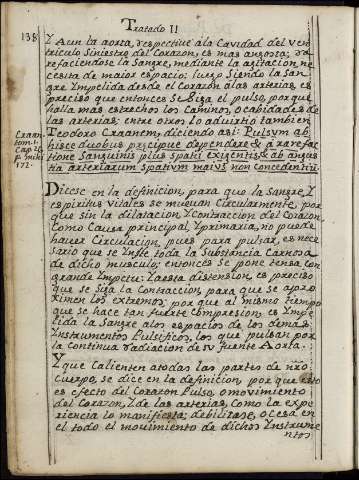 Tratado II
138
Y Aun la aorta, respective ala Cavidad del Ven
triculo Siniestro del Corazon, es mas angosta; ra
refaciendose la Sangre, mediante la agitacion ne
cesita de maior espacio: luego siendo la San
gre Impelida desde el Corazon alas arterias, es
preciso que entonces se siga el pulso, porque
halla mas estrechos los Caminos, o cabidades de
las arterias: entre otros lo advirtio tambien
Teodoro Craanem, diciendo asi: Pulsum ab
hisce duobus precipue dependere & a rarefac
tione Sanguinis plus spatij exigentis & ab angus
tia arteriarum spatium maius non concedentium
Craanem
tom. 1.
Cap. 28
p. mihi
172.
Dicese en la definicion, para que la Sangre, Y
espiritus vitales se muevan Circularmente, por
que sin la dilatacion, Y Contraccion del Corazon
como Causa principal Y primaria, no puede
hauer Circulacion, pues para pulsar, es nece
sario que se Infle toda la Substancia Carnosa
de dicho musculo; entonces se pone tensa, con
grande Impetu: Y a esta distension, es preciso
que se siga la Contraccion, para que se apro
ximen los extremos; por que al mismo tiempo
que se hace tan fuerte Compresion, es Impe
lida la Sangre alos espacios de los demas
Instrumentos Pulsificos, los que pulsan por
la Continua radiacion de su fuente Aorta.
Y que Calienten atodas las partes de nro
Cuerpo, se dice en la definicion, por que esto
es efecto del Corazon Pulso, o movimiento
del Corazon, Y de las arterias, como la expe
riencia lo manifiesta; debilitase, o cesa en
el todo el movimiento de dichos Instrume
ntos